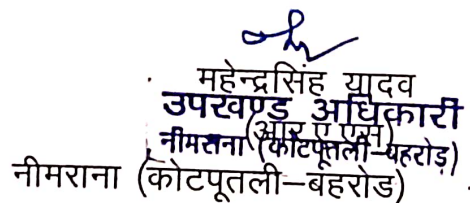 महेन्द्रसिंह यादव
उपखण्ड अधिकारी
(आर ए एस)
नीमराना (कोटपूतली–बहरोड़)
नीमराना (कोटपूतली–बहरोड)